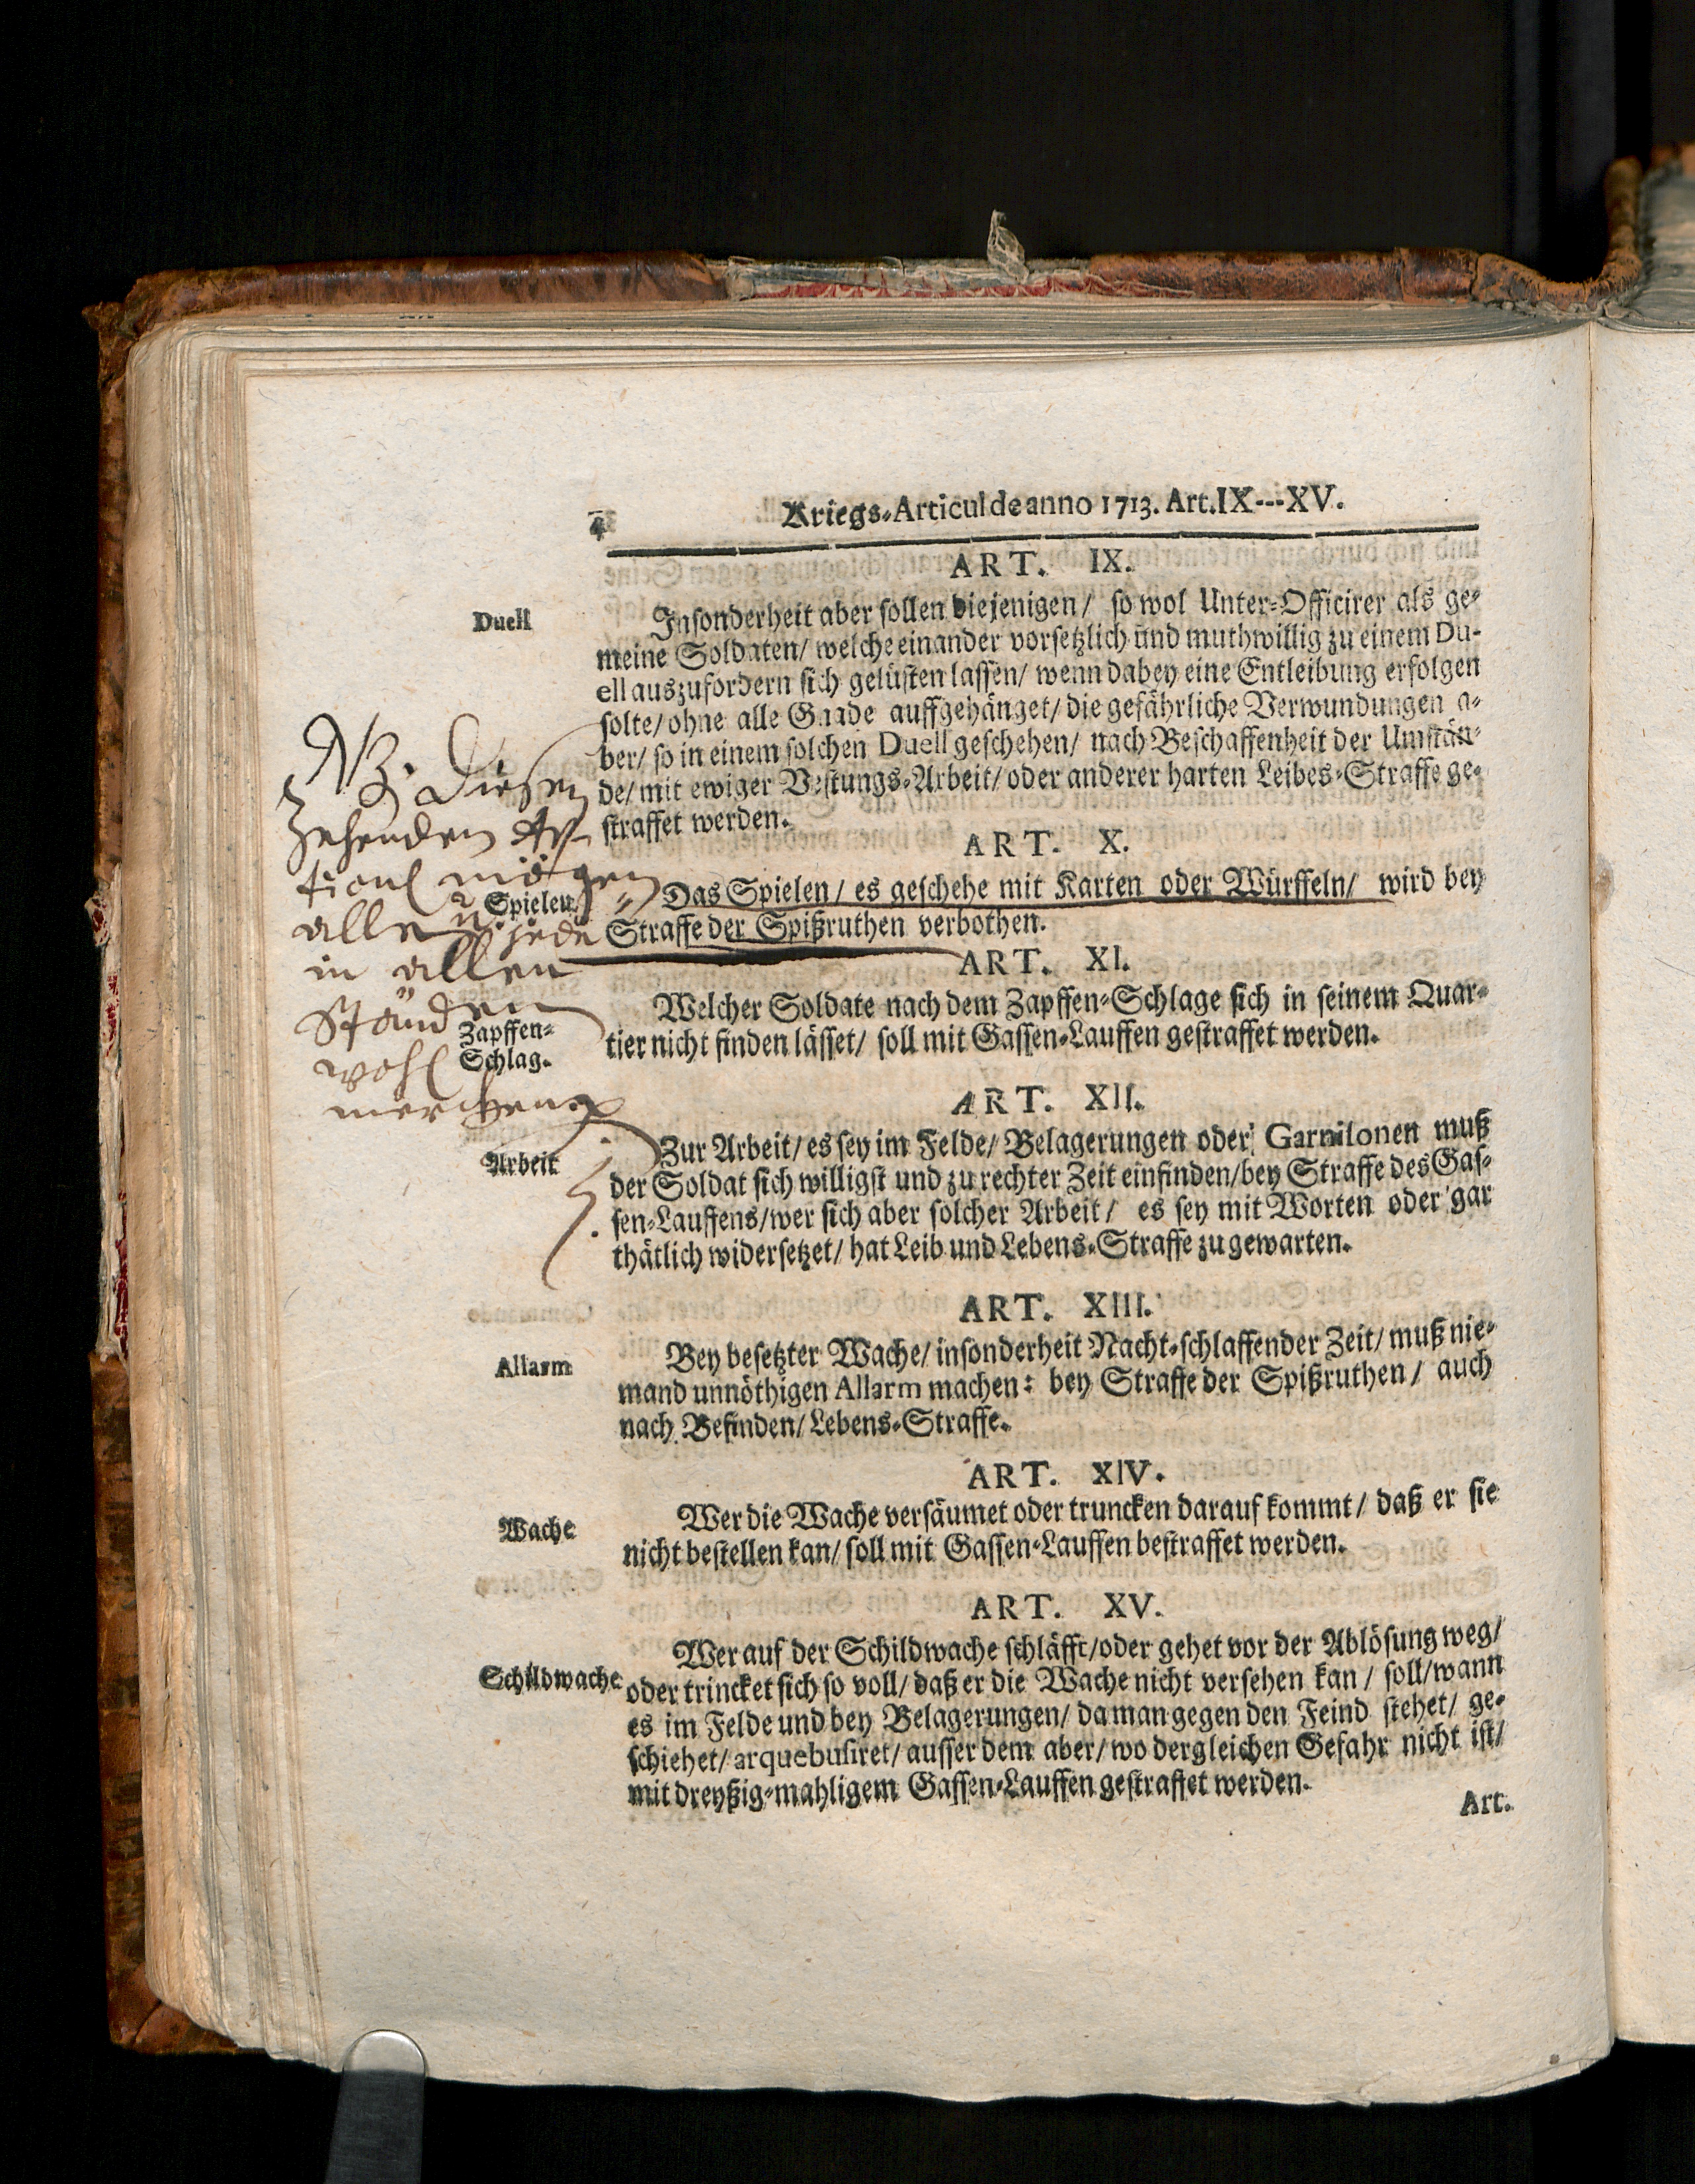 4
Kriegs-Articul de anno 1713. Art. IX---XV.
ART. IX.
Duell
Insonderheit aber sollen diejenigen/ so wol Unter-Officirer als ge-
meine Soldaten/ welche einander vorsetzlich und muthwillig zu einem Du-
ell auszufordern sich gelüsten lassen/ wenn dabey eine Entleibung erfolgen
solte/ ohne alle Gnade auffgehänget/ die gefährliche Verwundungen a-
ber/ so in einem solchen Duell geschehen/ nach Beschaffenheit der Umstän-
de/ mit ewiger Vestungs-Arbeit/ oder anderer harten Leibes-Straffe ge-
straffet werden.
NB. Diesen
Zehenden Ar-
ticul mögen
alle u. jede
in allen
Ständen
wohl
mercken.
ART. X.
Spielen.
Das Spielen/ es geschehe mit Karten oder Würffeln/ wird bey
Straffe der Spißruthen verbothen.
ART. XI.
Zapffen-
Schlag.
Welcher Soldate nach dem Zapffen-Schlage sich in seinem Quar-
tier nicht finden lässet/ soll mit Gassen-Lauffen gestraffet werden.
ART. XII.
Arbeit
Zur Arbeit/ es sey im Felde/ Belagerungen oder Garnisonen muß
der Soldat sich willigst und zu rechter Zeit einfinden/ bey Straffe des Gas-
sen-Lauffens/ wer sich aber solcher Arbeit/ es sey mit Worten oder gar
thätlich widersetzet/ hat Leib und Lebens-Straffe zu gewarten.
ART. XIII.
Allarm
Bey besetzter Wache/ insonderheit Nacht-schlaffender Zeit/ muß nie-
mand unnöthigen Allarm machen: bey Straffe der Spißruthen/ auch
nach Befinden/ Lebens-Straffe.
ART. XIV.
Wache
Wer die Wache versäumet oder truncken darauf kommt/ daß er sie
nicht bestellen kan/ soll mit Gassen-Lauffen bestraffet werden.
ART. XV.
Schildwache
Wer auf der Schildwache schläfft/ oder gehet vor der Ablösung weg/
oder trincket sich so voll/ daß er die Wache nicht versehen kan/ soll/ wann
es im Felde und bey Belagerungen/ da man gegen den Feind stehet/ ge-
schiehet/ arquebusiret/ ausser dem aber/ wo dergleichen Gefahr nicht ist/
mit dreyßig-mahligem Gassen-Lauffen gestraffet werden.
Art.